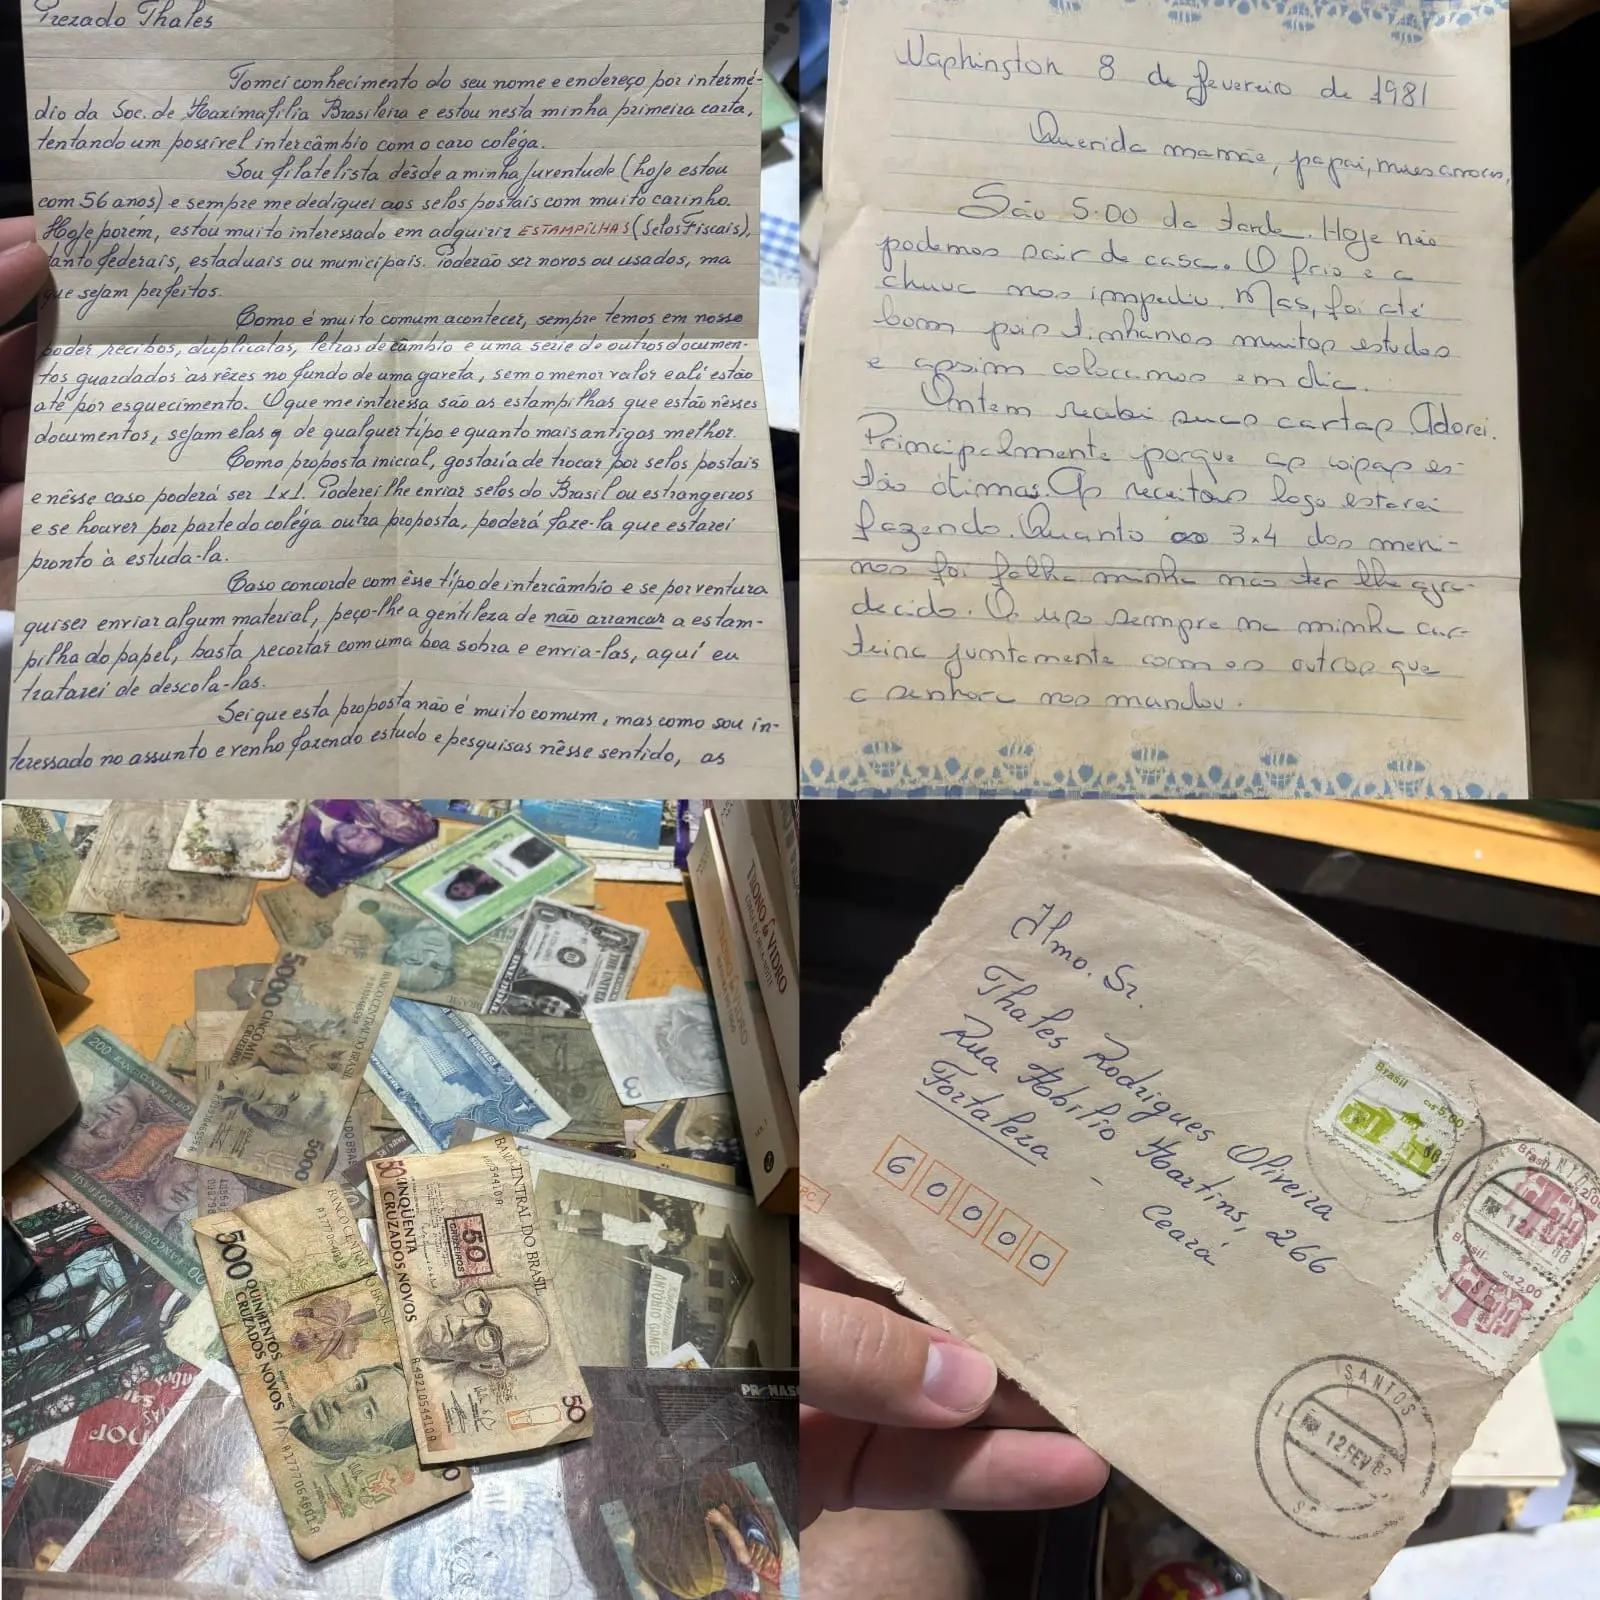 Prezado Thales
Tomei conhecimento do seu nome e endereço por intermé-
dio da Soc. de Maximafilia Brasileira e estou nesta minha primeira carta,
tentando um possível intercâmbio com o caro coléga.
Sou filatelista dêsde a minha juventude (hoje estou
com 56 anos) e sempre me dediquei aos selos postais com muito carinho.
Hoje porém, estou muito interessado em adquirir ESTAMPILHAS (Selos Fiscais),
tanto federais, estaduais ou municipais. Poderão ser novos ou usados, ma
que sejam perfeitos.
Como é muito comum acontecer, sempre temos em nosso
poder recibos, duplicatas, letras de câmbio e uma serie de outros documen-
tos guardados às vêzes no fundo de uma gaveta, sem o menor valor e alí estão
até por esquecimento. O que me interessa são as estampilhas que estão nêsses
documentos, sejam elas de qualquer tipo e quanto mais antigas melhor.
Como proposta inicial, gostaria de trocar por selos postais
e nêsse caso poderá ser 1x1. Poderei lhe enviar selos do Brasil ou estrangeiros
e se houver por parte do coléga outra proposta, poderá faze-la que estarei
pronto à estuda-la.
Caso concorde com êsse tipo de intercâmbio e se porventura
quiser enviar algum material, peço-lhe a gentileza de não arrancar a estam-
pilha do papel, basta recortar com uma boa sobra e envia-las, aquí eu
tratarei de descola-las.
Sei que esta proposta não é muito comum, mas como sou in-
teressado no assunto e venho fazendo estudo e pesquisas nêsse sentido, as
Washington 8 de fevereiro de 1981
Querida mamãe, papai, meus amores,
São 5:00 da tarde. Hoje não
podemos sair de casa. O frio e a
chuva nos impediu. Mas, foi até
bom pois tinhamos muitos estudos
e assim colocamos em dia.
Ontem recebi suas cartas. Adorei.
Principalmente porque as coisas es-
tão ótimas. As receitas logo estarei
fazendo. Quanto as 3x4 dos meni-
nos foi falha minha não ter lhe agra-
decido. Os uso sempre na minha car-
teira juntamente com os outros que
a senhora nos mandou.
5000
CINCO MIL
CRUZEIROS
BANCO CENTRAL DO BRASIL
5000
200
BANCO CENTRAL DO BRASIL
1
THE UNITED
TRONO DE VIDRO
TRONO DE VIDRO
500
QUINHENTOS
CRUZADOS NOVOS
BANCO CENTRAL DO BRASIL
A1777064601A
50
CINQÜENTA
CRUZADOS NOVOS
50
CRUZEIROS
BANCO CENTRAL DO BRASIL
50
ANTONIO GOMES
Ilmo. Sr.
Thales Rodrigues Oliveira
Rua Abilio Martins, 266
Fortaleza - Ceará
60000
Brasil
Cz$ 5,00
Brasil
Brasil
Cz$ 2,00
SANTOS
12 FEV 88